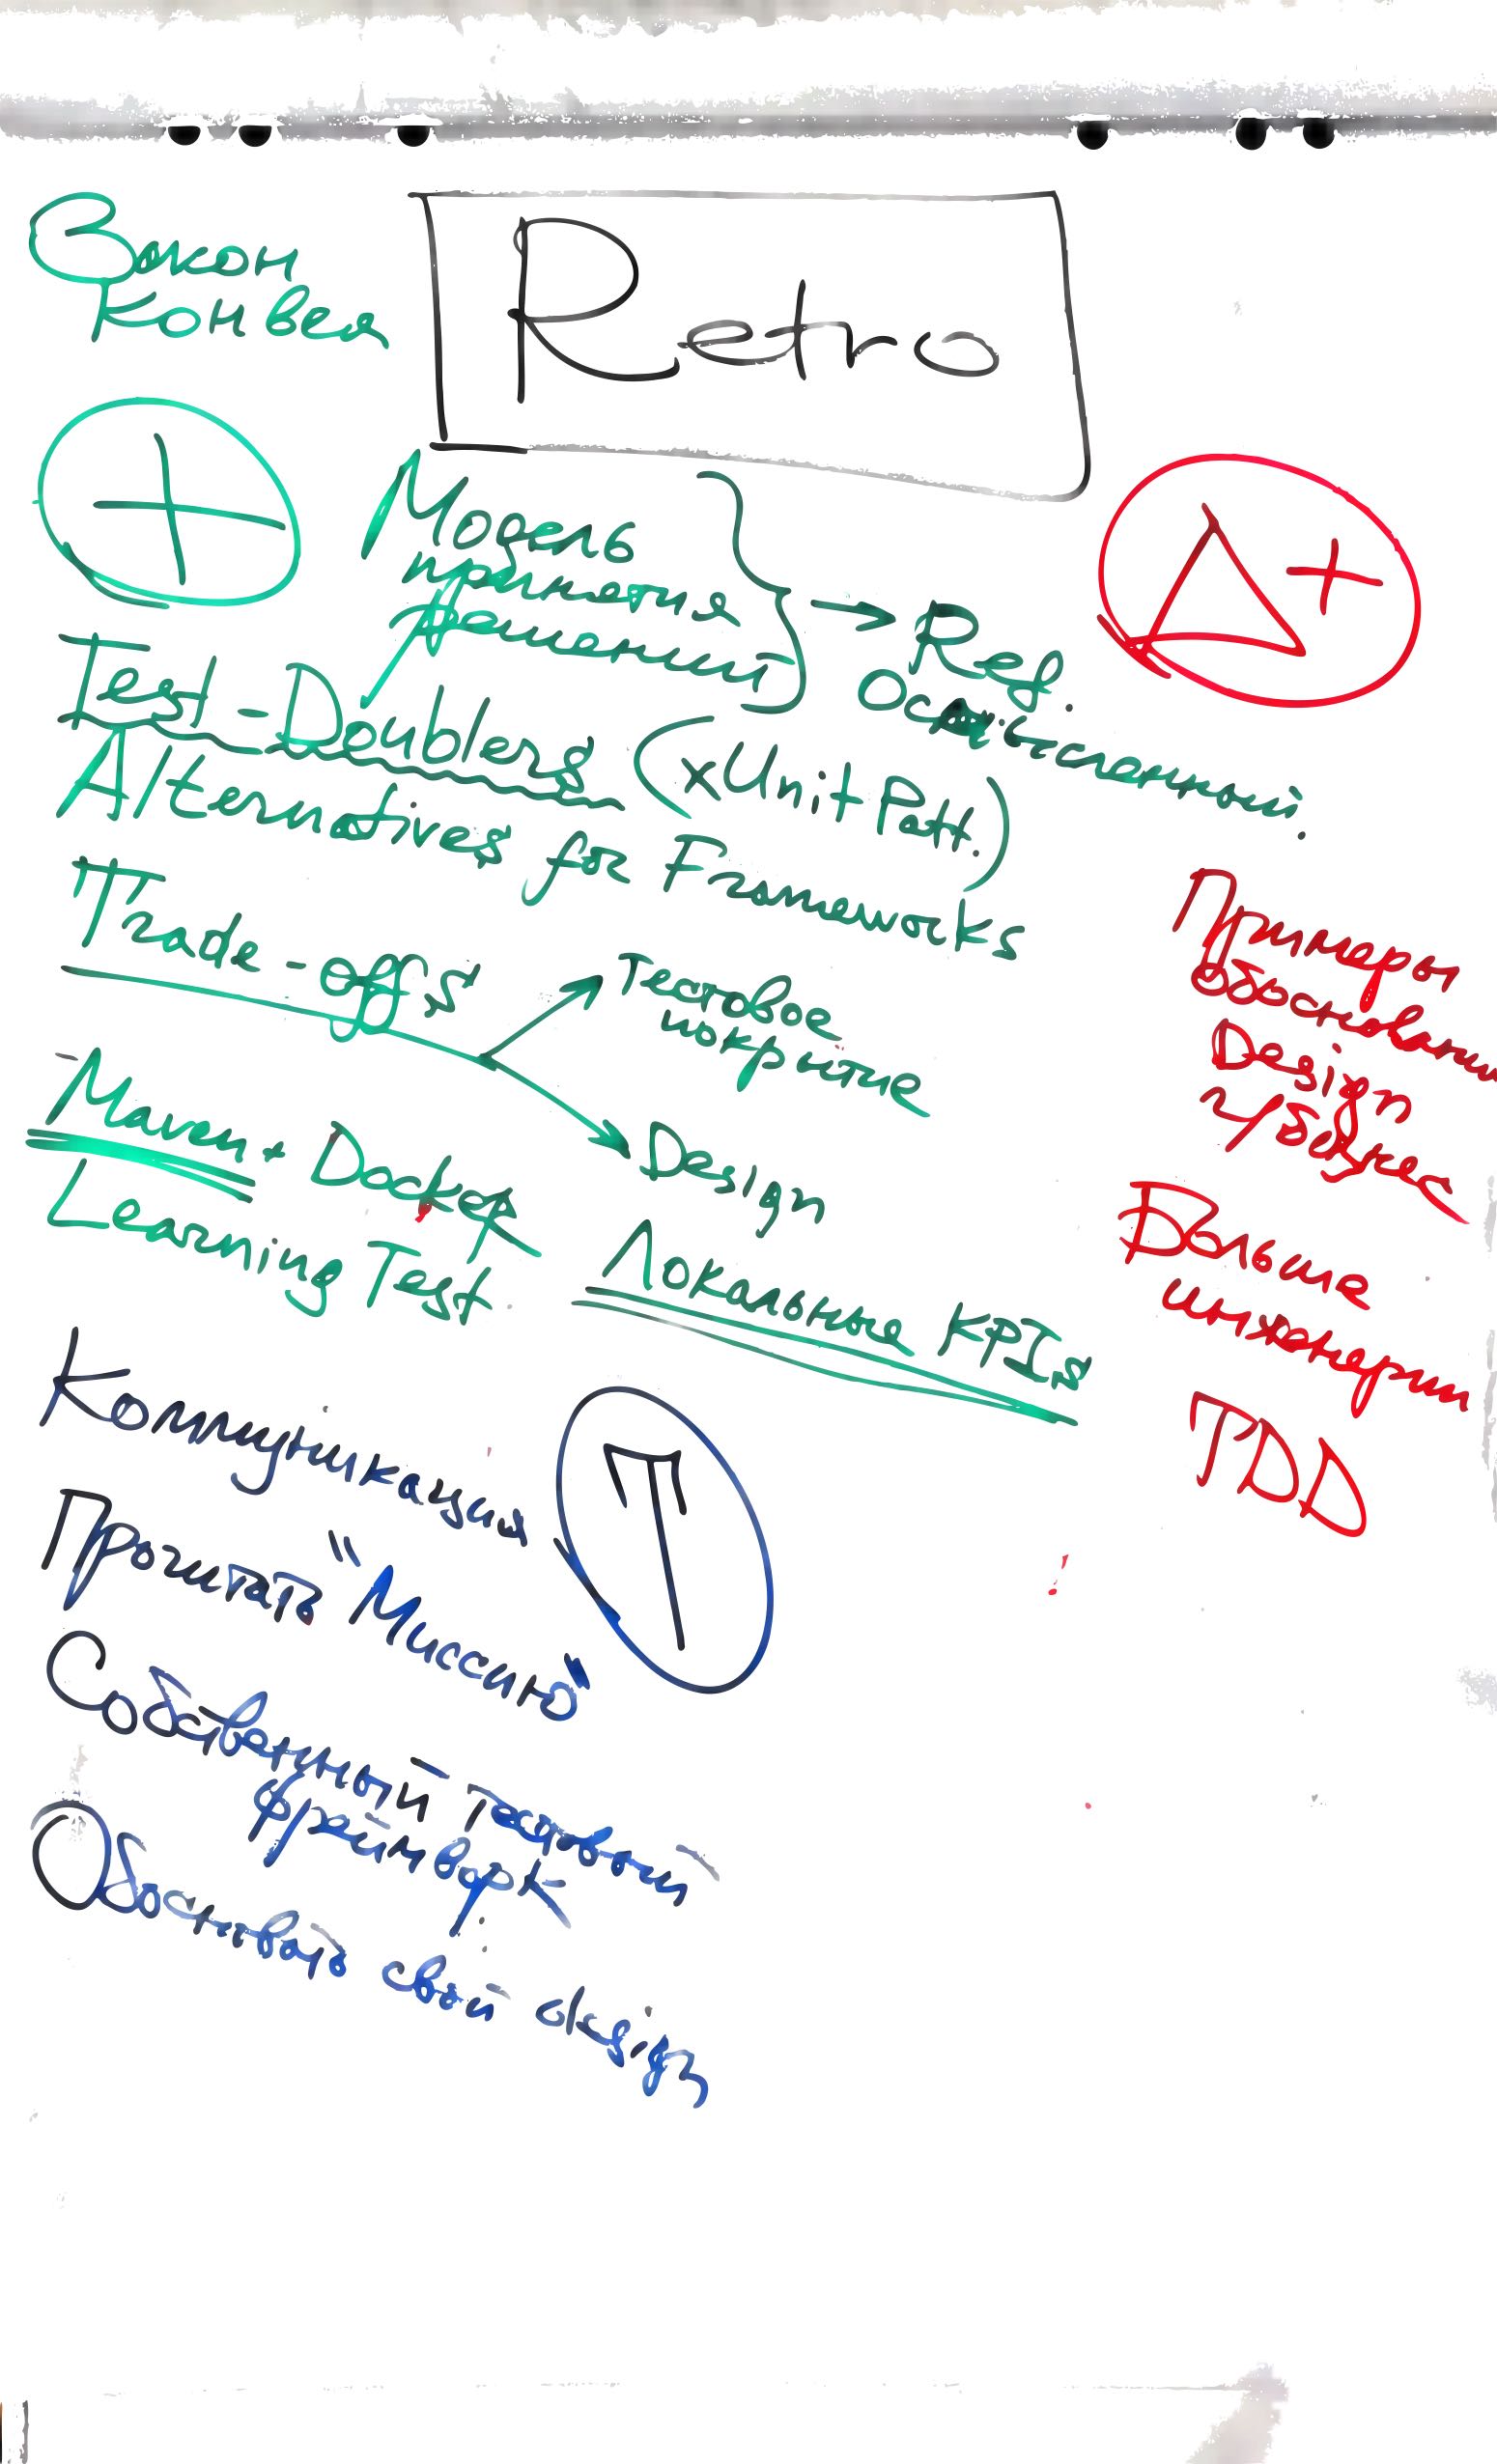 Закон
Конвея
Retro
+
Модель
принятия
решений
→ Ref.
Осмысленный
Δ+
Test-Doublers (xUnit Patt.)
Alternatives for Frameworks
Trade-offs
Тестовое
покрытие
Design
Maven + Docker
Learning Test
Локальные KPIs
Примеры
обоснования
Design
Больше
инженерии
TDD
Коммуникация
T
Прочитать "Миссию"
Собственный тестовый
фреймворк
Обосновать свой design